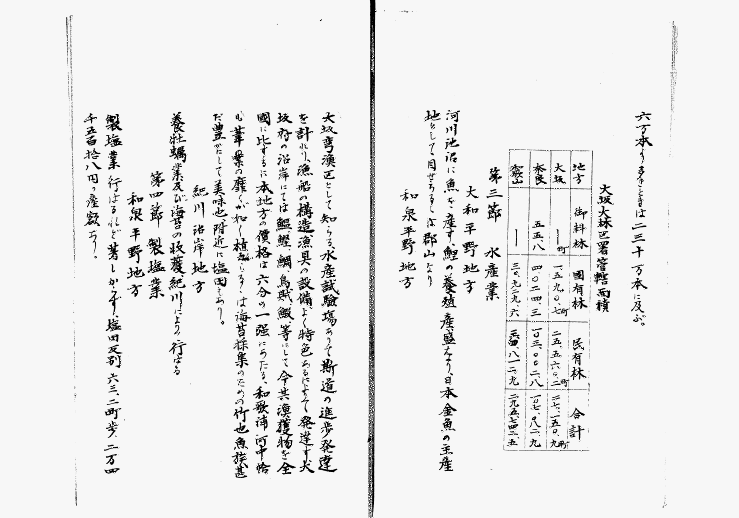 六万本
は二三十万本に及ぶ。
大坂大林区署管轄面積
地方 御料林 國有林 民有林 合計
大坂 ― 一五九〇、七町 二五、五六〇、二町 二七、一五〇、九町
奈良 五五八 四〇二四、三 一〇三、〇〇二、八
和歌山 ―
第三節 水産業
大和平野地方
河川池沼に魚を産す、鯉の養殖産盛なり、日本金魚の主産
地として目せらるゝは郡山なり
和泉平野地方
大坂湾漁区として知らる、水産試験場ありて斯道の進歩発達
を計れり、漁船の構造漁具の設備よく特色あるによりて発達す、大
坂府の沿岸にては鰮、鰹、鯛、烏賊、鰕等にして今其漁獲物を全
國に比するに本地方の價格は六分の一強にあたる、和歌浦河中恰
も葦の
は海苔採集のための竹也魚族甚
だ豊かにして美味也、附近に塩田あり。
紀川沿岸地方
養牡蠣業及び海苔の收獲、紀川により行はる
第四節 製塩業
和泉平野地方
製塩業行はるれど著しからず、塩田反別六三、二町歩、二万四
千五百拾八円の産額あり。